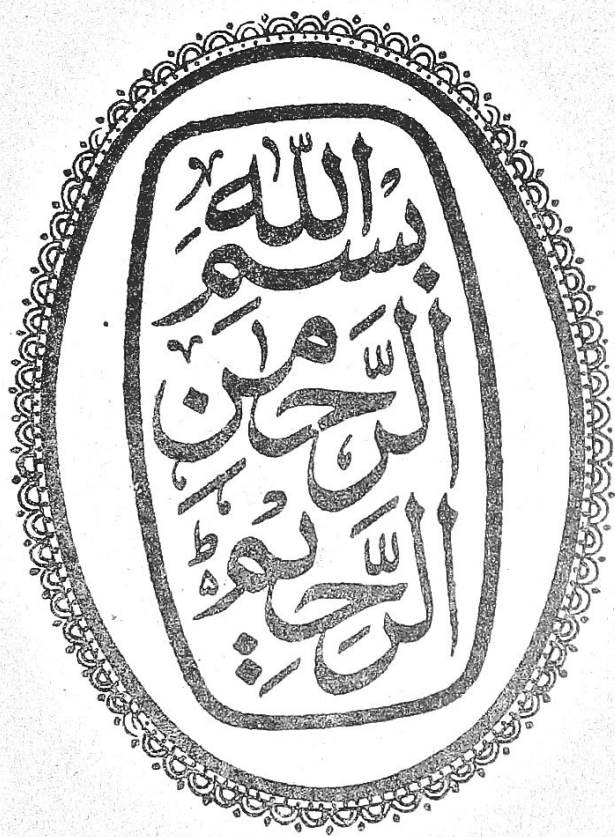 بِسْمِ اللّٰهِ
الرَّحْمٰنِ
الرَّحِيْمِ ط ه